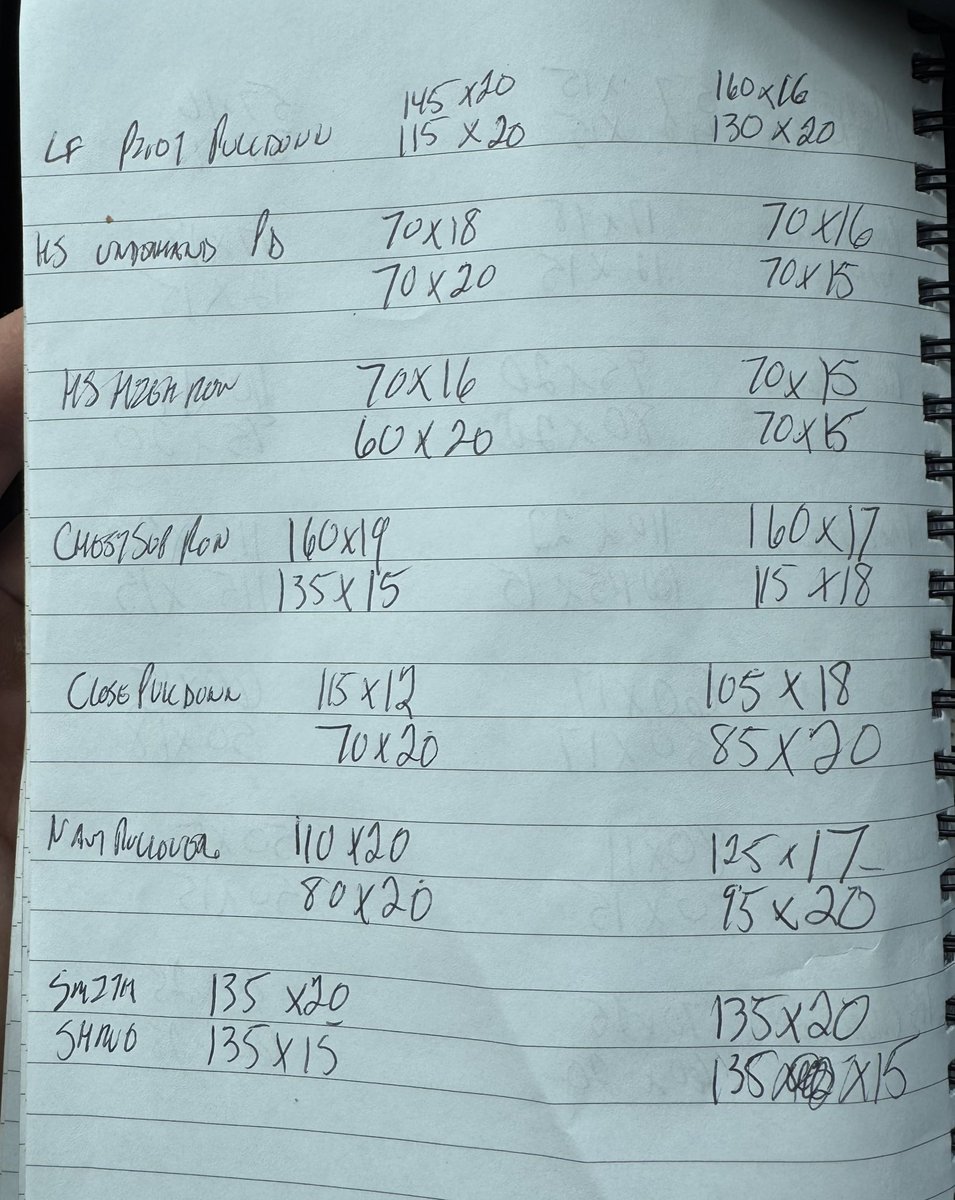 145 x 20 160 x 16
LF PIVOT PULLDOWN 115 x 20 130 x 20
HS UNDERHAND PD 70 x 18 70 x 16
70 x 20 70 x 15
HS HIGH ROW 70 x 16 70 x 15
60 x 20 70 x 15
CHEST SUP ROW 160 x 19 160 x 17
135 x 15 115 x 18
CLOSE PULLDOWN 115 x 12 105 x 18
70 x 20 85 x 20
NAUT PULLOVER 110 x 20 125 x 17
80 x 20 95 x 20
SMITH 135 x 20 135 x 20
SHRUG 135 x 15 135 x 15